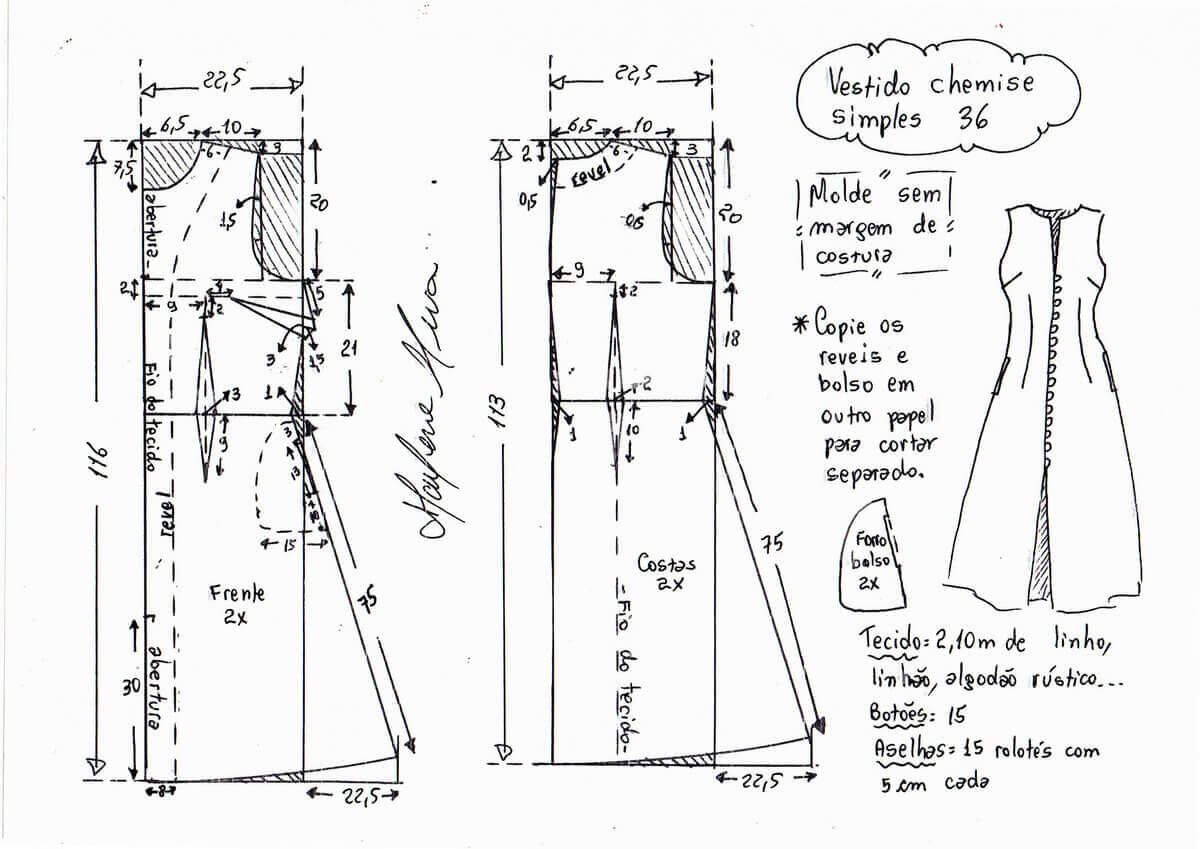 22,5
6,5
10
6
3
7,5
abertura
1,5
20
2
9
4
2
5
3
1,5
21
Fio do tecido
3
1
9
3
13
15
116
revel
Frente
2x
75
30
abertura
8
22,5
Marlene Mukai
22,5
6,5
10
2
6
3
revel
0,5
0,5
20
9
2
18
2
1
10
1
113
Costas
2x
75
Fio do tecido
22,5
Vestido chemise
simples 36
Molde sem
margem de
costura
* Copie os
reveis e
bolso em
outro papel
para cortar
separado.
Forro
bolso
2x
Tecido: 2,10m de linho,
linhão, algodão rústico...
Botões: 15
Aselhas: 15 rolotés com
5 cm cada